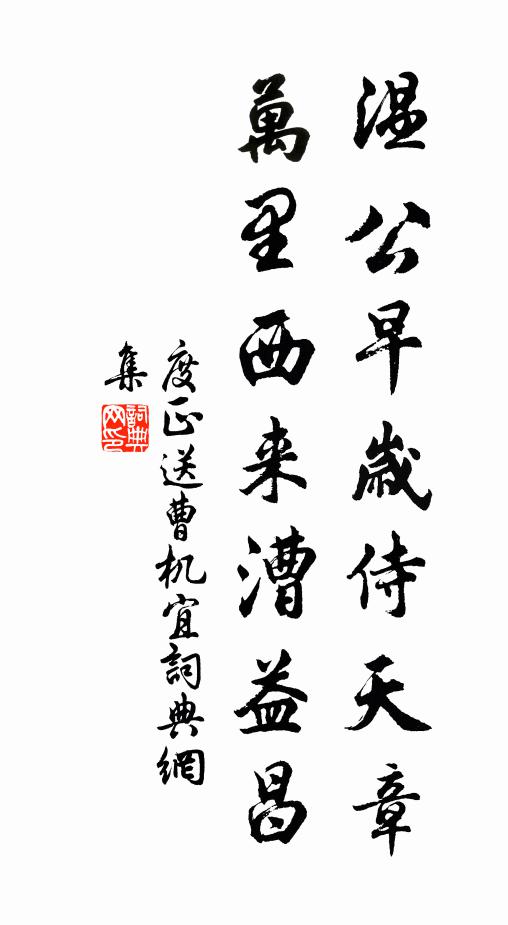 温公早歲侍天章
萬里西来漕益昌
度正送曹机宜詞典網
集
詞典網印